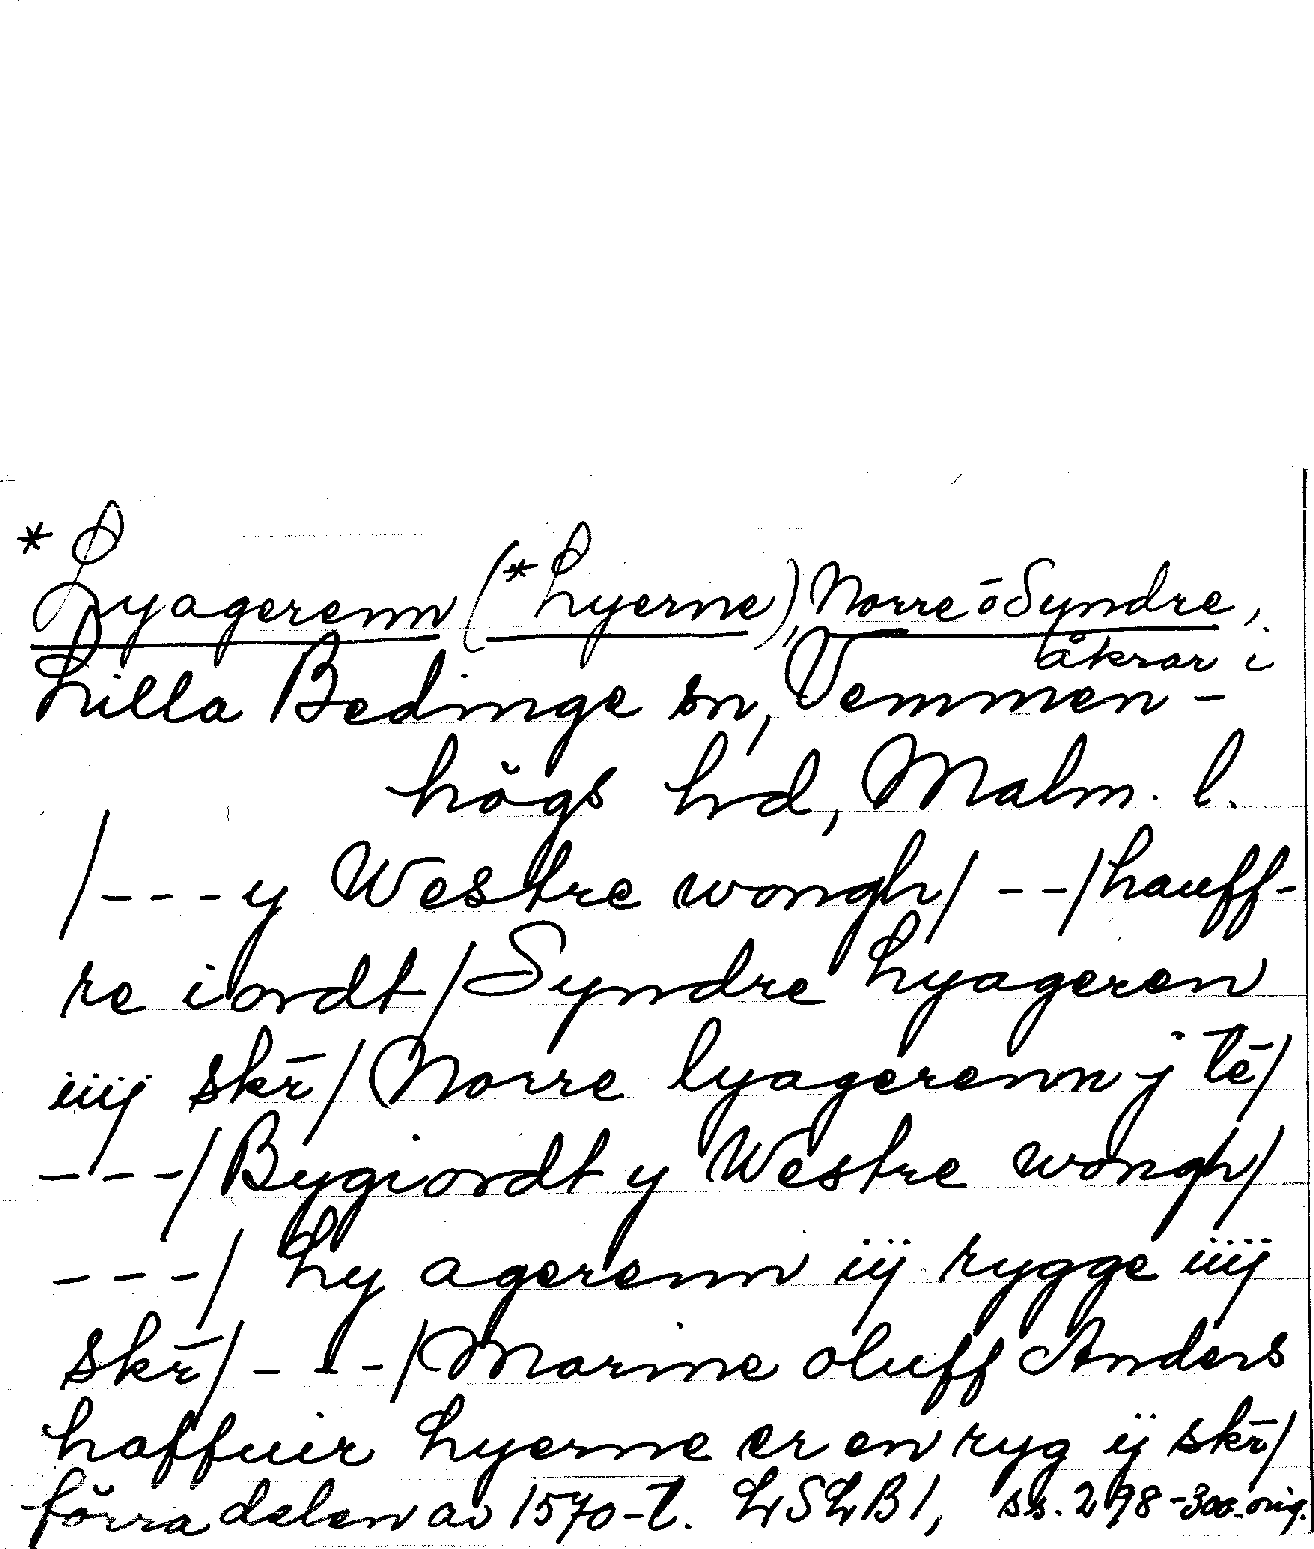 * Lyagerenn (*Lyerne), Norre o Syndre,
åkrar i
Lilla Bedinge sn, Vemmen-
högs hd, Malm. l.
/---y Westre wongh/ --/hauff-
re iordt/Syndre Lyageren
iiij skr̄/Norre lyagerenn j tē/
---/Bygiordt y Westre wongh/
---/ Ly agerenn iij rygge iiij
skr̄/---/Marine oluff Anders
haffuir Lyerne er en ryg ij skr̄/
förra delen av 1570-t. LSLB1, ss. 298-300. orig.